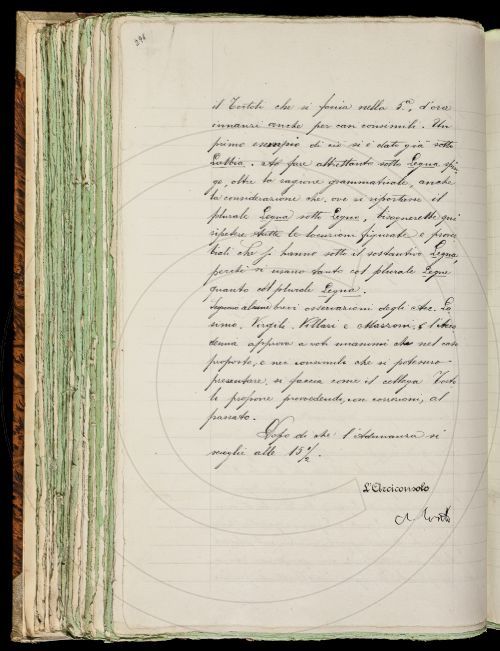 296
il Tortoli che si faccia nella 5ª, d'ora
innanzi anche per casi consimili. Un
primo esempio di ciò si è dato già sotto
Labbia. A fare altrettanto sotto Legna spin
ge, oltre la ragione grammaticale, anche
la considerazione che, ove si riportasse il
plurale Legna sotto Legno, bisognerebbe qui
ripetere tutte le locuzioni figurate e prover
biali che si hanno sotto il sostantivo Legna,
perchè si usano tanto col plurale Legne
quanto col plurale Legna.
Seguono alcune brevi osservazioni degli Acc.
Virgili, Villari e Mazzoni, e l'Acca
demia approva a voti unanimi che nel caso
proposto, e nei consimili che si potessero
presentare, si faccia come il collega Torto
li propone provvedendo, con correzioni, al
passato.
Dopo di che l'Adunanza si
scioglie alle 15 ½.
L'Arciconsolo